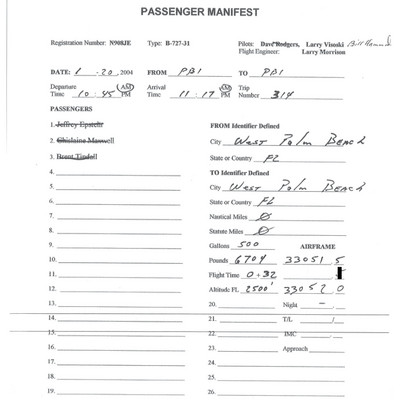 PASSENGER MANIFEST
Registration Number: N908JE Type: B-727-31 Pilots: Dave Rodgers, Larry Visoski Bill Hammond
Flight Engineer: Larry Morrison
DATE: 1-20, 2004 FROM PBI TO PBI
Departure Time 10:45 AM PM Arrival Time 11:17 AM PM Trip Number 314
PASSENGERS
1. Jeffrey Epstein FROM Identifier Defined
2. Ghislaine Maxwell City West Palm Beach
3. Brent Tindall State or Country FL
4. TO Identifier Defined
5. City West Palm Beach
6. State or Country FL
7. Nautical Miles 0
8. Statute Miles 0
9. Gallons 500 AIRFRAME
10. Pounds 6704 33051 5
11. Flight Time 0+32
12. Altitude FL 2500' 33052 0
13. 20. Night -
14. 21. T/L
15. 22. IMC
16. 23. Approach
17. 24.
18. 25.
19. 26.